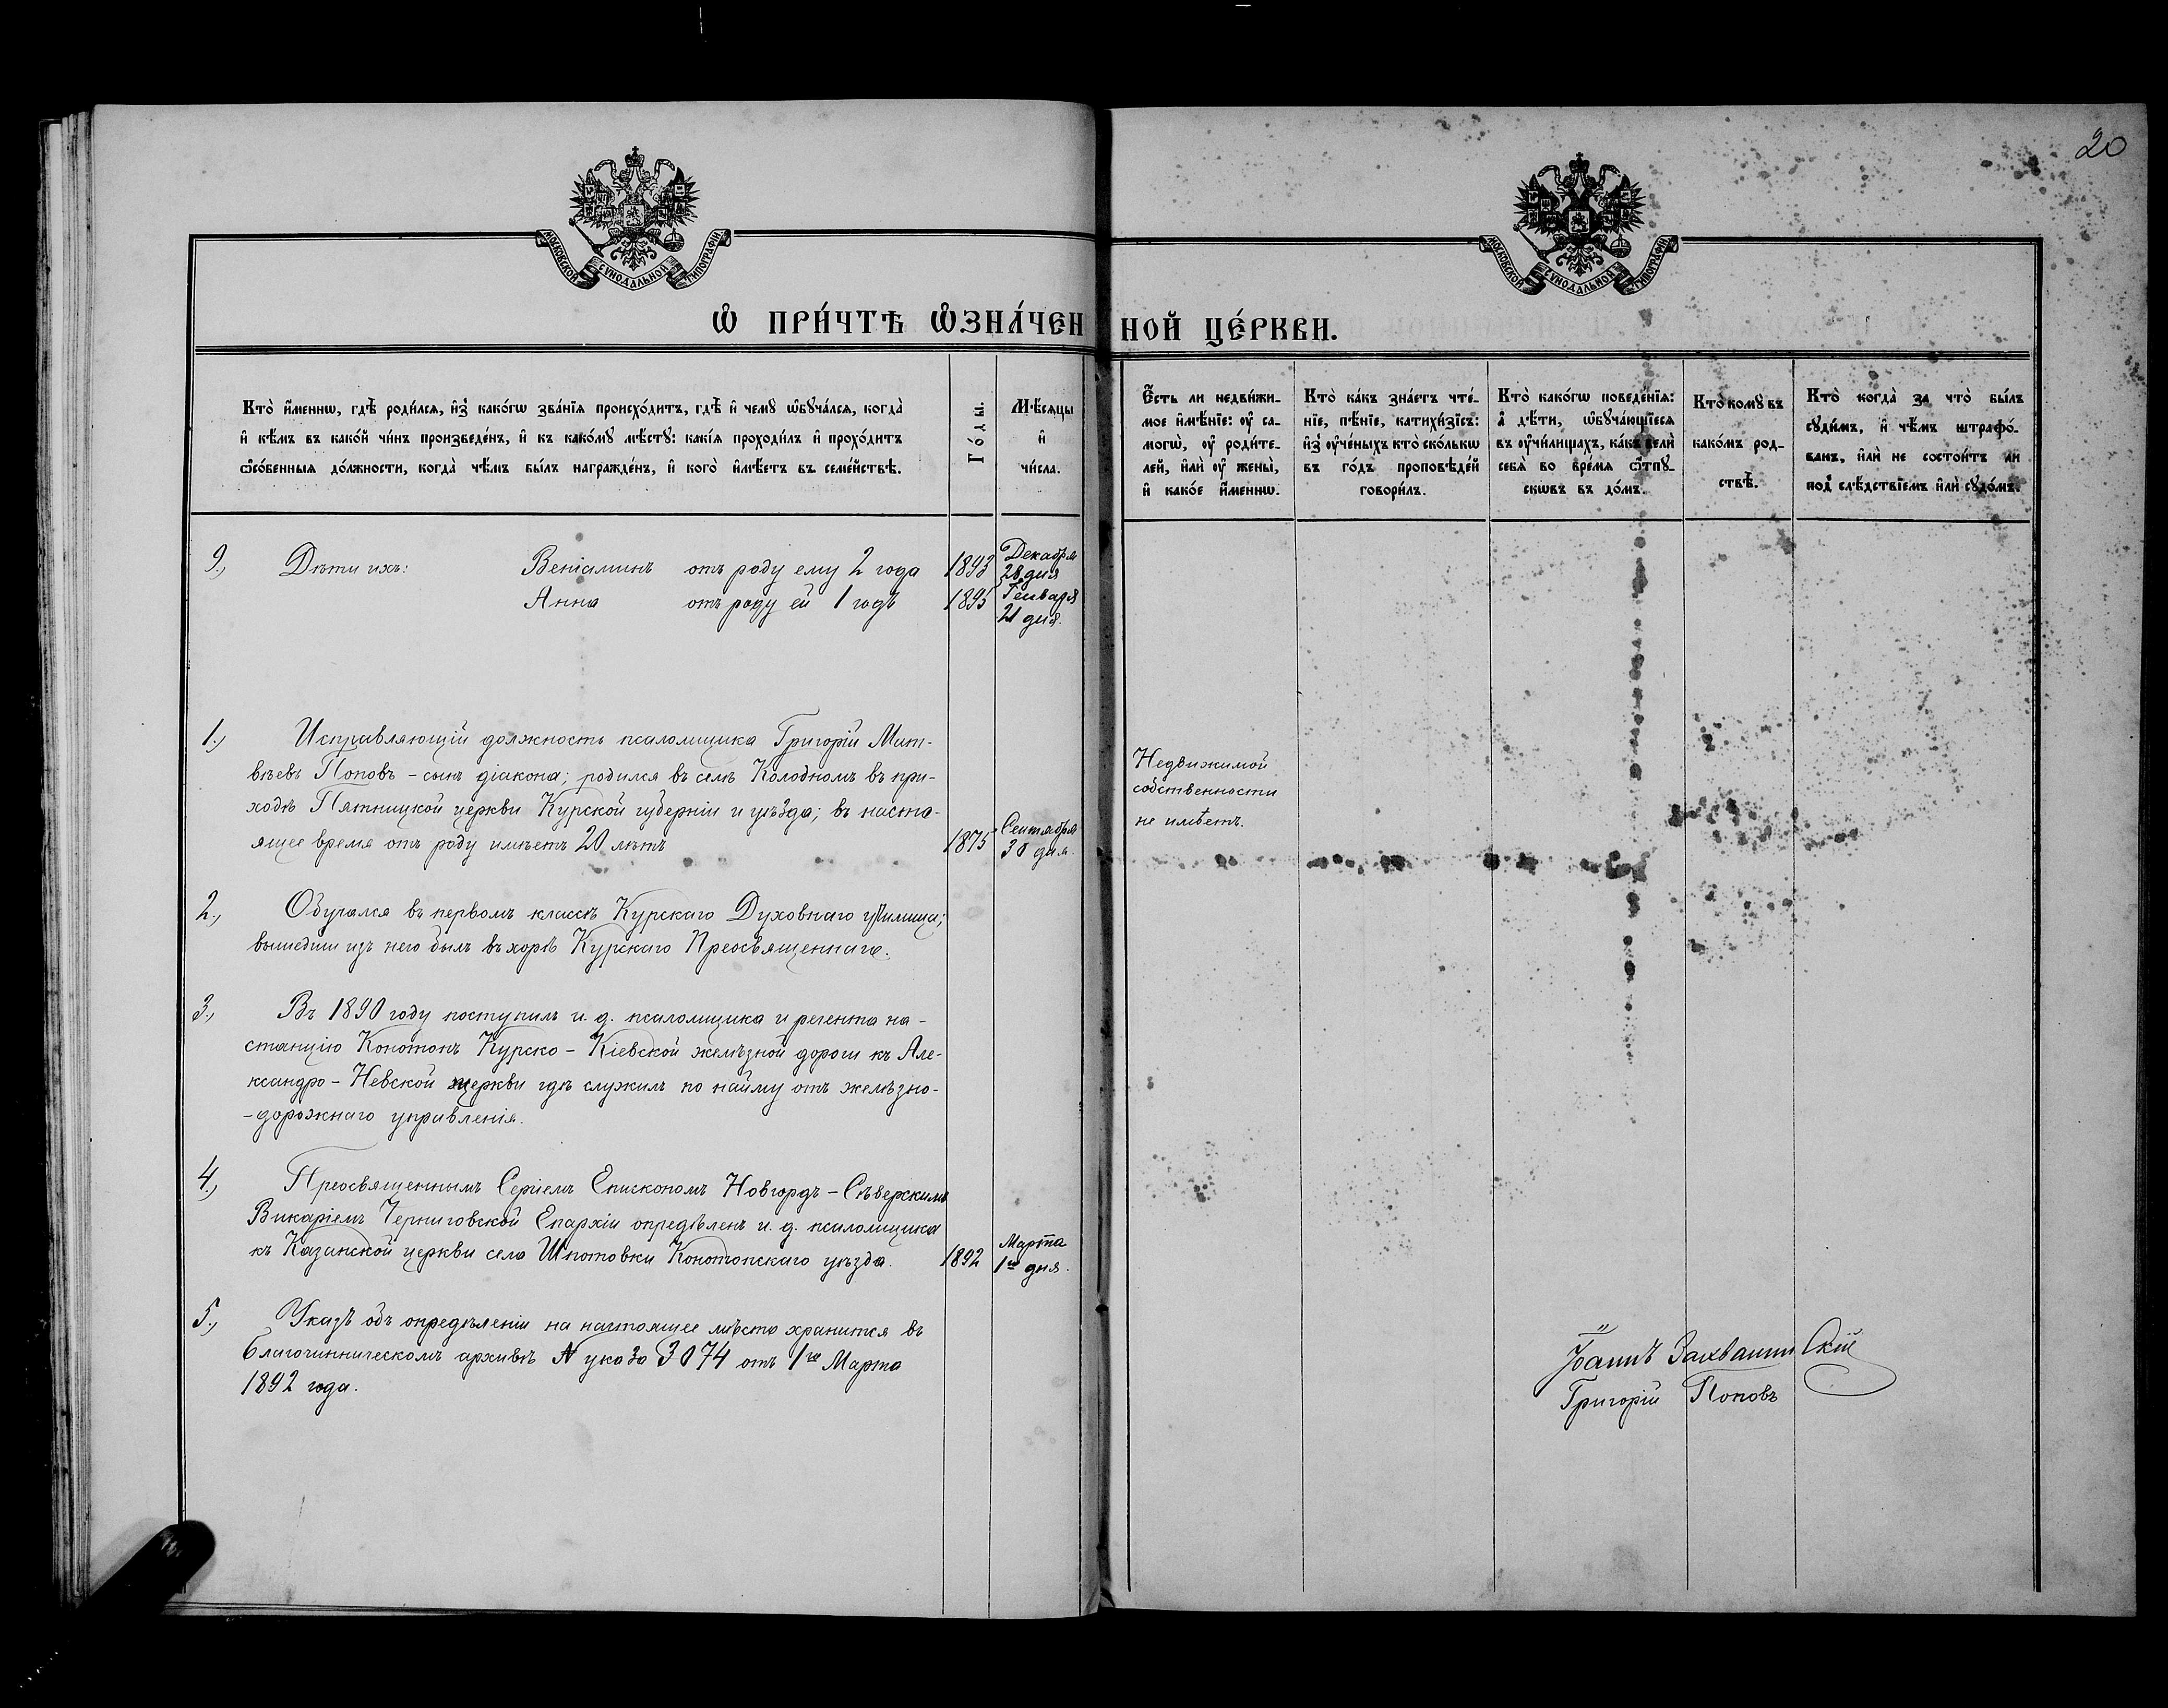 20
МОСКОВСКОЙ СУНОДАЛЬНОЙ ТИПОГРАФІИ
МОСКОВСКОЙ СУНОДАЛЬНОЙ ТИПОГРАФІИ
Ѽ ПРИ́ЧТѢ ѼЗНА́ЧЕННОЙ ЦЕ́РКВИ.
Кто̀ и҆́менно, гдѣ̀ роди́лсѧ, и҆з̾ како́гѡ зва́нїѧ происхо́дитъ, гдѣ̀ и҆ чемꙋ̀ ѡ҆бꙋча́лсѧ, когда̀
и҆ кѣ́мъ въ како́й чи́нъ произведе́нъ, и҆ къ како́мꙋ мѣ́стꙋ: какі̑ѧ проходи́лъ и҆ прохо́дитъ
ѻ҆со́бенныѧ до́лжности, когда̀ чѣ́мъ бы́лъ награжде́нъ, и҆ кого̀ и҆мѣ́етъ въ семе́йствѣ.
Го́ды.
Мѣ́сѧцы
и҆
чи́сла.
Е҆́сть ли недви́жи-
мое и҆мѣ́нїе: ᲂу҆ са-
могѡ̀, ᲂу҆ роди́те-
лей, и҆лѝ ᲂу҆ жены̀,
и҆ како́е и҆́менно.
Кто̀ ка́къ зна́етъ чте́-
нїе, пѣ́нїе, катихи́зїсъ:
и҆з̾ ᲂу҆че́ныхъ кто̀ ско́лькѡ
въ го́дъ проповѣ́дей
говори́лъ.
Кто̀ како́гѡ поведе́нїѧ:
а҆ дѣ́ти, ѡ҆бꙋча́ющїесѧ
въ ᲂу҆чи́лищахъ, ка́къ велѝ
себѧ̀ во вре́мѧ ѿпꙋ-
скѡвъ въ до́мъ.
Кто̀ комꙋ̀ въ
како́мъ род-
ствѣ̀.
Кто̀ когда̀ за что̀ бы́лъ
сꙋди́мъ, и҆ чѣ́мъ штрафо́-
ванъ, и҆лѝ не состои́тъ ли
под̾ слѣ́дствїемъ и҆лѝ сꙋдо́мъ.
9., Дѣти ихъ: Веніаминъ отъ роду ему 2 года 1893 Декабря 28 дня
Анна отъ роду ей 1 годъ 1895 Генваря 21 дня.
1., Исправляющій должность псаломщика Григорій Мат-
вѣевъ Поповъ – сынъ діакона; родился въ селѣ Колодномъ въ при-
ходѣ Пятницкой церкви Курской губерніи и уѣзда; въ насто-
ящее время отъ роду имѣетъ 20 лѣтъ 1875 Сентября 30 дня.
Недвижимой
собственности
не имѣетъ.
2., Обучался въ первомъ классѣ Курскаго Духовнаго училища;
вышедши изъ него былъ въ хорѣ Курскаго Преосвященнаго.
3., Въ 1890 году поступилъ и. д. псаломщика и регента на-
станцію Конотопъ Курско – Кіевской желѣзной дороги къ Але-
ксандро – Невской церкви гдѣ служилъ по найму отъ желѣзно-
-дорожнаго управленія.
4., Преосвященнымъ Сергіемъ Епископомъ Новгордъ – Сѣверскимъ
Викаріемъ Черниговской Епархіи опредѣленъ и. д. псаломщика
къ Казанской церкви села Шпотовки Конотопскаго уѣзда. 1892 Марта 1го дня.
5., Указъ объ опредѣленіи на настоящее мѣсто хранится въ
Благочинническомъ архивѣ № указа 3074 отъ 1го Марта
1892 года.
Григорій Поповъ